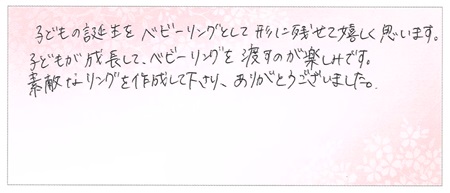 子どもの誕生を ベビーリングとして 形に残せて嬉しく思います。
子どもが成長して、ベビーリングを 渡すのが楽しみです。
素敵なリングを作成して下さり、ありがとうございました。